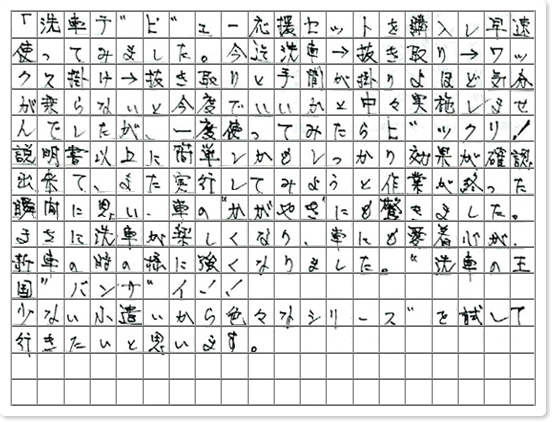 「洗車デビュー応援セットを購入し早速
使ってみました。今迄洗車→拭き取り→ワッ
クス掛け→拭き取りと手間が掛りよほど気分
が乗らないと今度でいいかと中々実施しませ
んでしたが、一度使ってみたらビックリ!
説明書以上に簡単しかもしっかり効果が確認
出来て、また実行してみようと作業が終った
瞬間に思い、車の“かがやき”にも驚きました。
まさに洗車が楽しくなり、車にも愛着心が、
新車の時の様に強くなりました。“洗車の王
国”バンザーイ!!
少ない小遣いから色々なシリーズを試して
行きたいと思います。